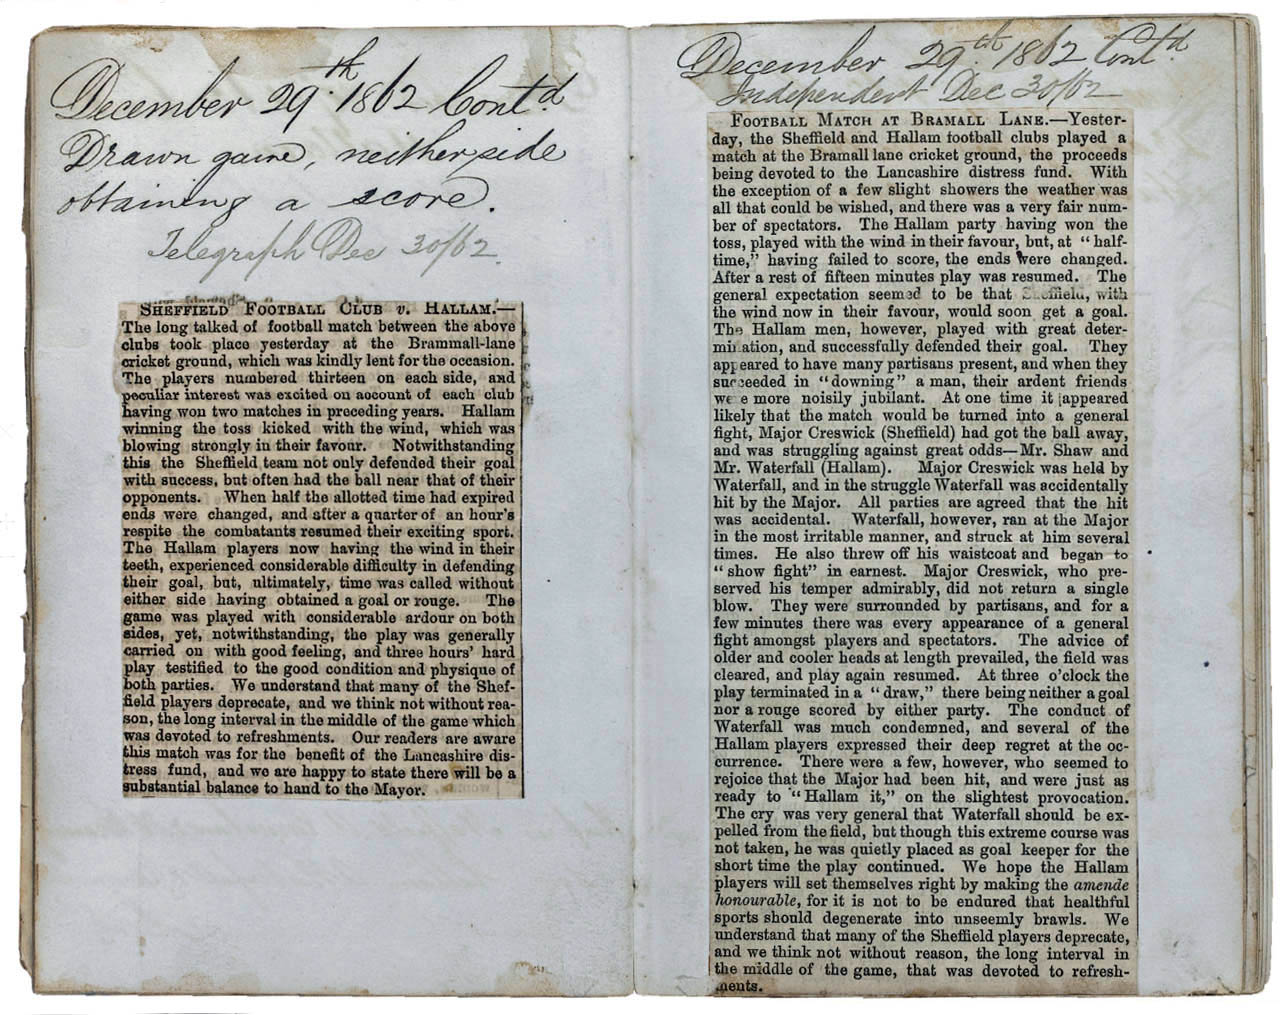 December 29th 1862 Contd
Drawn game, neither side
obtaining a score.
Telegraph Dec 30/62.
SHEFFIELD FOOTBALL CLUB v. HALLAM.—
The long talked of football match between the above
clubs took place yesterday at the Brammall-lane
cricket ground, which was kindly lent for the occasion.
The players numbered thirteen on each side, and
peculiar interest was excited on account of each club
having won two matches in preceding years. Hallam
winning the toss kicked with the wind, which was
blowing strongly in their favour. Notwithstanding
this the Sheffield team not only defended their goal
with success, but often had the ball near that of their
opponents. When half the allotted time had expired
ends were changed, and after a quarter of an hour's
respite the combatants resumed their exciting sport.
The Hallam players now having the wind in their
teeth, experienced considerable difficulty in defending
their goal, but, ultimately, time was called without
either side having obtained a goal or rouge. The
game was played with considerable ardour on both
sides, yet, notwithstanding, the play was generally
carried on with good feeling, and three hours' hard
play testified to the good condition and physique of
both parties. We understand that many of the Shef-
field players deprecate, and we think not without rea-
son, the long interval in the middle of the game which
was devoted to refreshments. Our readers are aware
this match was for the benefit of the Lancashire dis-
tress fund, and we are happy to state there will be a
substantial balance to hand to the Mayor.
December 29th 1862 Contd
Independent Dec 30/62
FOOTBALL MATCH AT BRAMALL LANE.—Yester-
day, the Sheffield and Hallam football clubs played a
match at the Bramall lane cricket ground, the proceeds
being devoted to the Lancashire distress fund. With
the exception of a few slight showers the weather was
all that could be wished, and there was a very fair num-
ber of spectators. The Hallam party having won the
toss, played with the wind in their favour, but, at "half-
time," having failed to score, the ends were changed.
After a rest of fifteen minutes play was resumed. The
general expectation seemed to be that Sheffield, with
the wind now in their favour, would soon get a goal.
The Hallam men, however, played with great deter-
mination, and successfully defended their goal. They
appeared to have many partisans present, and when they
succeeded in "downing" a man, their ardent friends
were more noisily jubilant. At one time it appeared
likely that the match would be turned into a general
fight, Major Creswick (Sheffield) had got the ball away,
and was struggling against great odds—Mr. Shaw and
Mr. Waterfall (Hallam). Major Creswick was held by
Waterfall, and in the struggle Waterfall was accidentally
hit by the Major. All parties are agreed that the hit
was accidental. Waterfall, however, ran at the Major
in the most irritable manner, and struck at him several
times. He also threw off his waistcoat and began to
"show fight" in earnest. Major Creswick, who pre-
served his temper admirably, did not return a single
blow. They were surrounded by partisans, and for a
few minutes there was every appearance of a general
fight amongst players and spectators. The advice of
older and cooler heads at length prevailed, the field was
cleared, and play again resumed. At three o'clock the
play terminated in a "draw," there being neither a goal
nor a rouge scored by either party. The conduct of
Waterfall was much condemned, and several of the
Hallam players expressed their deep regret at the oc-
currence. There were a few, however, who seemed to
rejoice that the Major had been hit, and were just as
ready to "Hallam it," on the slightest provocation.
The cry was very general that Waterfall should be ex-
pelled from the field, but though this extreme course was
not taken, he was quietly placed as goal keeper for the
short time the play continued. We hope the Hallam
players will set themselves right by making the amende
honourable, for it is not to be endured that healthful
sports should degenerate into unseemly brawls. We
understand that many of the Sheffield players deprecate,
and we think not without reason, the long interval in
the middle of the game, that was devoted to refresh-
ments.